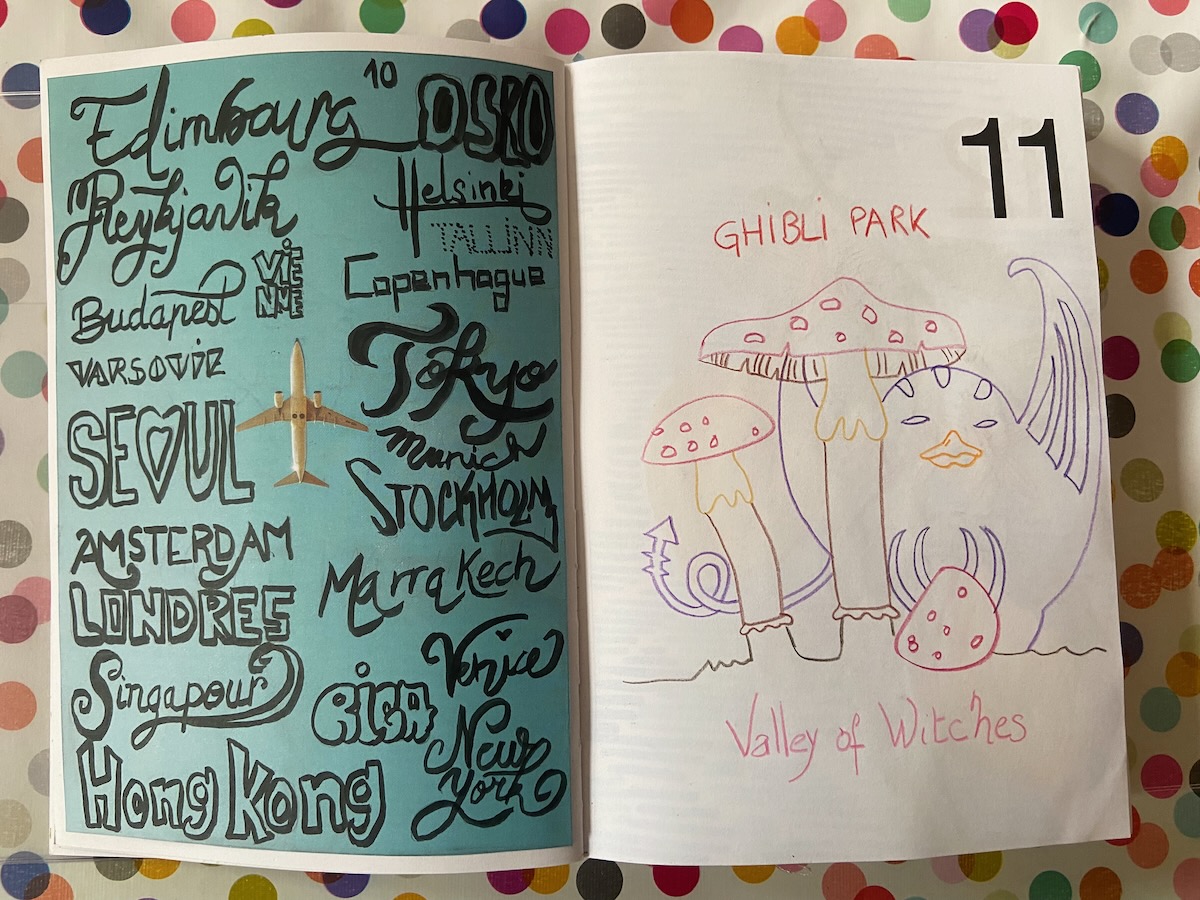 10
Edimbourg
OSLO
Reykjavik
Helsinki
TALLiNN
ViE
NNE
Copenhague
Budapest
VARSOViE
Tokyo
SE♡UL
Munich
STOCKHOLM
AMSTERDAM
Marrakech
LONDRES
Singapour
Venice
RiGA
New
York
Hong Kong
11
GHiBLi PARK
Valley of Witches